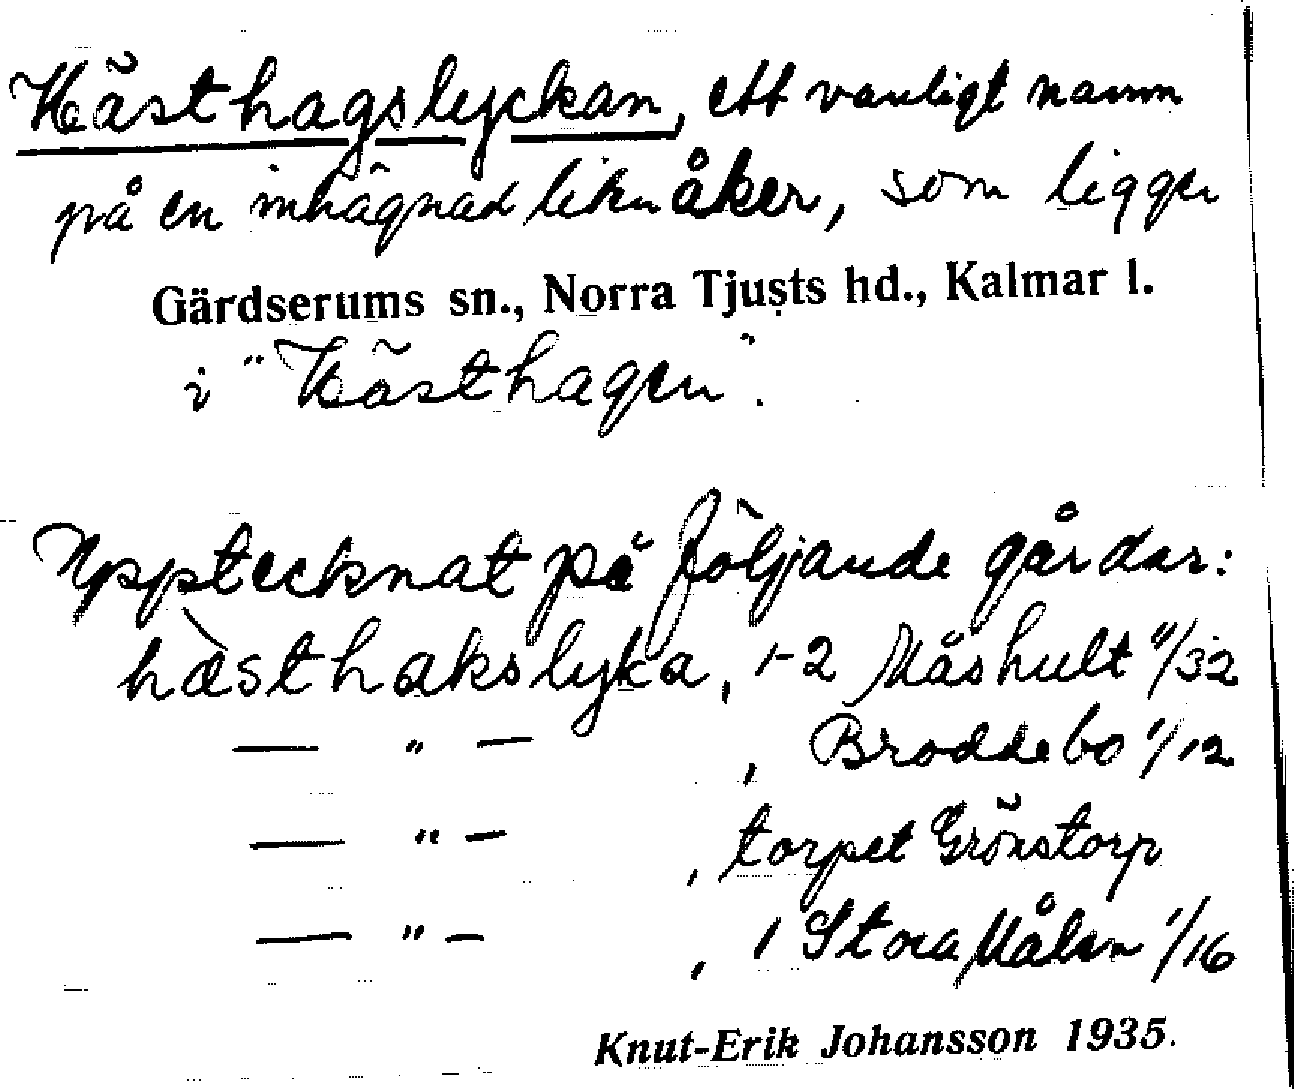 Hästhagslyckan, ett vanligt namn
på en inhägnad liten åker, som ligger
Gärdserums sn., Norra Tjusts hd., Kalmar l.
i "Hästhagen".
Upptecknat på följande gårdar:
hæsthakslyka, 1-2 Måshult 11/32
— " — , Broddebo 1/12
— " — , torpet Grönstorp
— " — , 1 Stora Målen 1/16
Knut-Erik Johansson 1935.